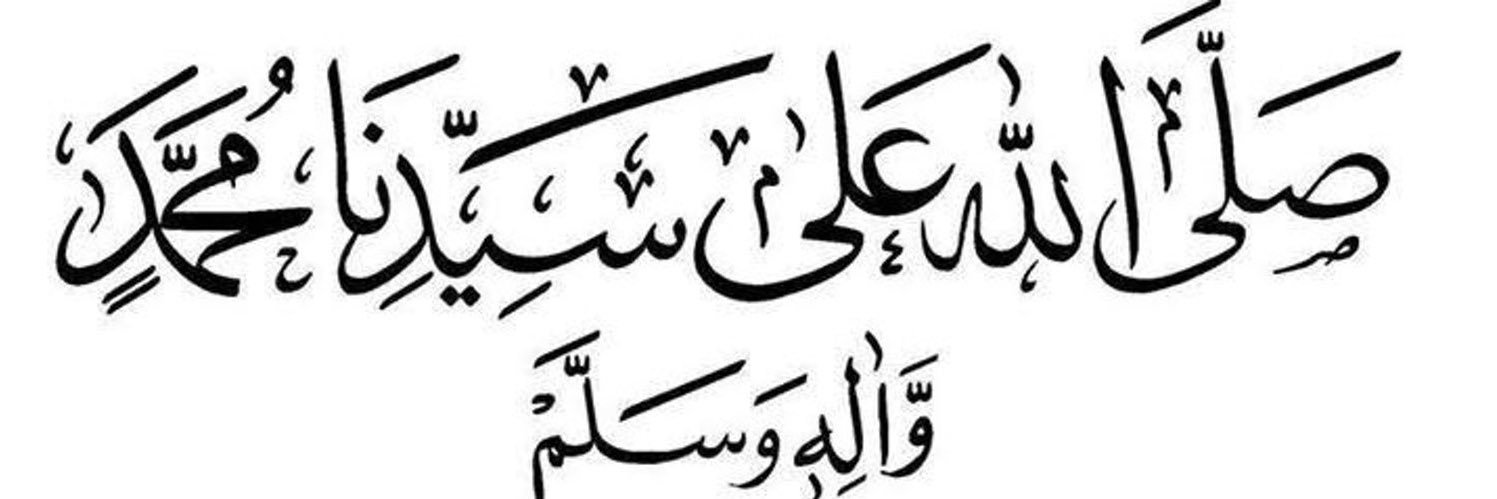 صَلَّى اللّٰهُ عَلٰى سَيِّدِنَا مُحَمَّدٍ
وَّاٰلِهٖ وَسَلَّمْ